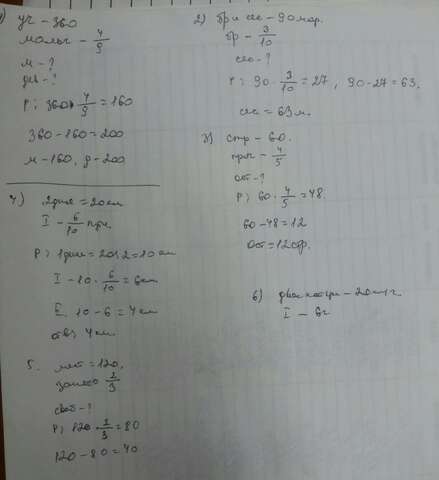 1) уч - 360
мальч - 4/9
м - ?
дев - ?
Р: 360 · 4/9 = 160
360 - 160 = 200
м - 160, д - 200
2) бр и сес - 90 мар.
бр - 3/10
сес - ?
Р: 90 · 3/10 = 27, 90 - 27 = 63.
сес = 63 м.
3) стр - 60.
проч - 4/5
ост - ?
Р: 60 · 4/5 = 48.
60 - 48 = 12
Ост = 12 стр.
4) 2 дня = 20 км
I - 6/10
Р: 1 = 20 : 2 = 10 км
I - 10 · 6/10 = 6 км
10 - 6 = 4 км
отв: 4 км
5. мест = 120,
занято 2/3
своб - ?
Р: 120 · 2/3 = 80
120 - 80 = 40
6)
I - 6г